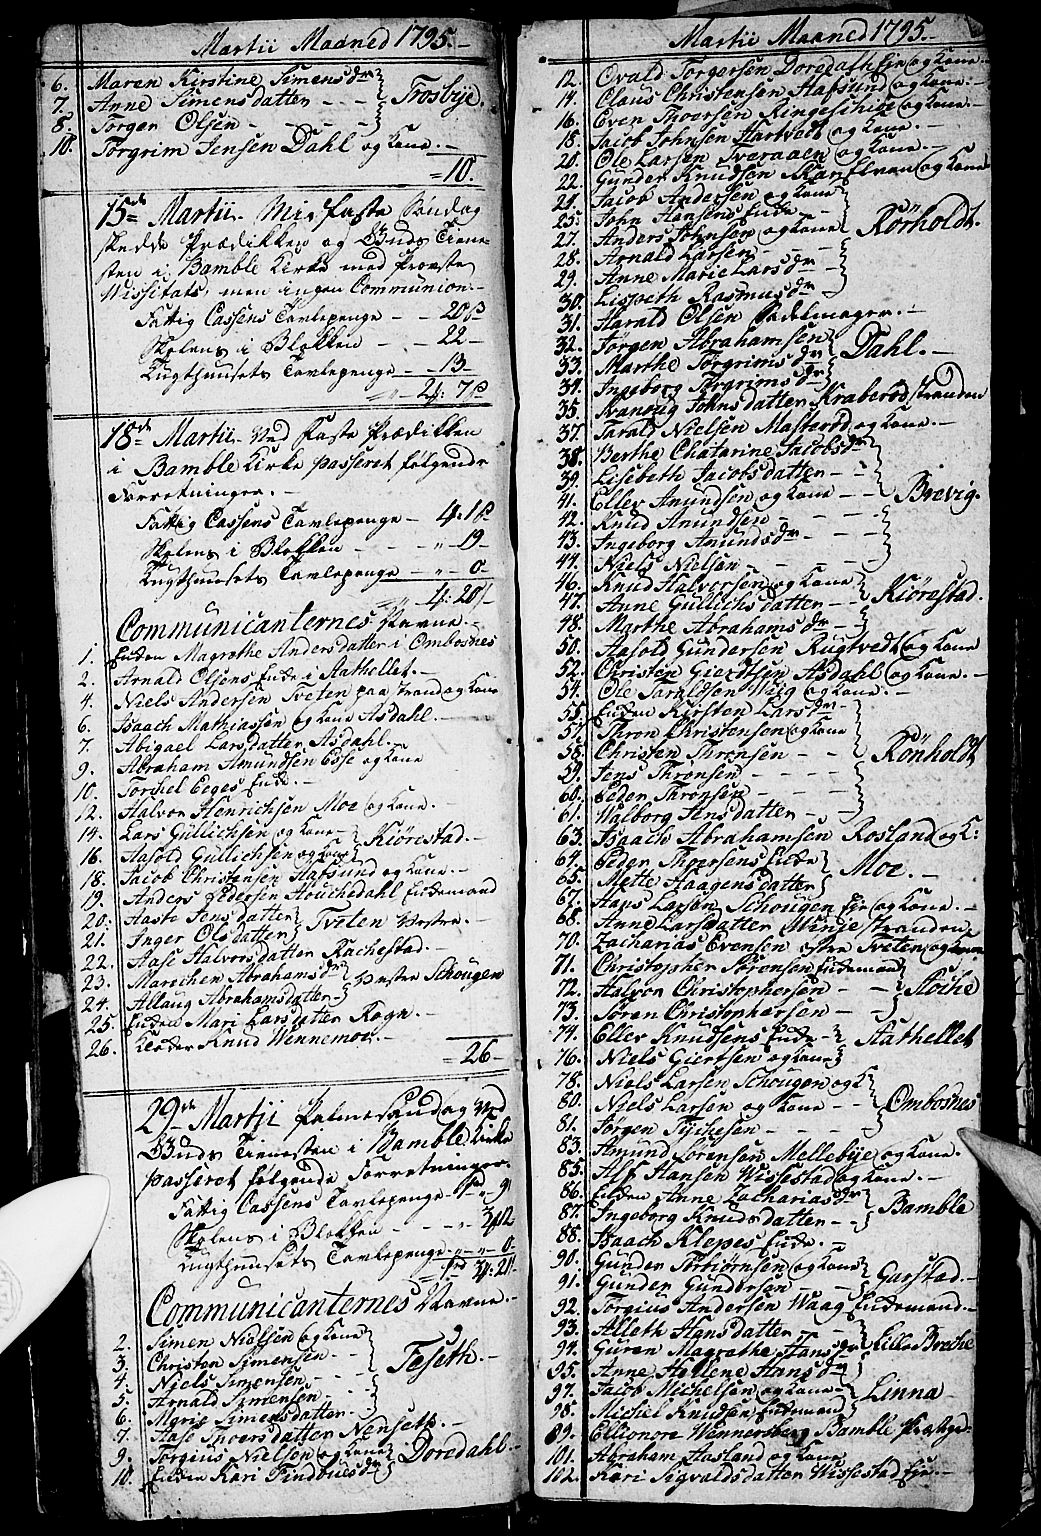 Martii Maaned 1795.
6. Maren Kirstine Simensdr
7. Anne Simensdatter - - - Trosbye.
8. Torger Olsen - - - -
10. Torgrim Jensen Dahl og Kone. -
= 10.
15de Martii. Midfaste Søndag
skedde Prædikken og Guds Tiene-
sten i Bamble Kirke med Provste
Wissitats, men ingen Communion. -
Fattig Cassens Tavlepenge - - 20 s
Skolens i Blokken - - - 22 -
Tugthuusets Tavlepenge - - 13 -
2: 7 s
18de Martii. Ved Faste Prædikken
i Bamble Kirke passeret følgende
Forretninger. -
Fattig Cassens Tavlepenge - 4: 1 s
Skolens i Blokken - - - 19 -
Tugthuusets Tavlepenge - - 0
4: 20 -
Communicanternes Navne. -
1. Enken Magrethe Andersdatter i Ombosnes
2. Arnold Olsens Enke i Stathellet. -
4. Niels Andersen Tveten paa Strand og Kone
6. Isaach Mathiassen og Kone Asdahl. -
7. Abigael Larsdatter Asdahl. -
9. Abraham Amundsen Esse og Kone
10. Torchel Eeges Enke. -
12. Halvor Henrichsen Moe og Kone. -
14. Lars Gullichsen og Kone - Kiørestad. -
16. Aasold Gullichsen og Kone
18. Jacob Christensen Hafsund og Kone. -
19. Anders Pedersen Houchedahl Enkemand
20. Aaste Jensdatter Tveten Vestre. -
21. Inger Olsdatter
22. Aase Halvorsdatter Rachestad. -
23. Marichen Abrahamsdr Vestre Schougen
24. Allaug Abrahamsdatter -
25. Enken Mari Larsdatter Rogn. -
26. Knud Wennemoe. -
= 26 -
29de Martii Palmesøndag Ved
Guds Tienesten i Bamble Kirke
passeret følgende Forretninger.
Fattig Cassens Tavlepenge
Skolens i Blokken - - -
Tugthuusets Tavlepenge - - 0
Communicanternes Navne. -
2. Simen Nielsen og Kone
3. Christen Simensen. - -
4. Niels Simensen - - - Feseth. -
5. Arnold Simensen - -
6. Marie Simensdatter -
7. Aase Thorsdatter Nenseth. -
9. Torgius Nielsen og Kone Doredahl. -
10. Enken Kari Findbuesdr
Martii Maaned 1795. -
12. Ovald Torgersen Doredahl Eje og Kone. -
14. Claus Christensen Hafsund og Kone. -
16. Even Thorsen Ringeschioe og Kone. -
18. Jacob Johnsen Hartvedt og Kone. -
20. Ole Larsen Sveraaen og Kone. -
22. Gunder Knudsen og Kone
24. Jacob Andersen og Kone
25. John Hansens Enke - -
27. Anders Johnsen og Kone Rörholdt.
28. Arnold Larsen - - -
29. Anne Marie Larsdr -
30. Lisbeth Rasmusdr
31. Harald Olsen Sadelmager. -
32. Jørgen Abrahamsen
33. Marthe Torgrimsdr Dahl. -
34. Ingeborg Torgrimsdr
35. Svanoug Johnsdatter Kraberødstranden
37. Tarald Nielsen Masterød og Kone. -
38. Berthe Chatarine Jacobsdr
39. Lisebeth Jacobsdatter - -
41. Ellef Anundsen og Kone - - Brevig.
42. Knud Anundsen - - -
43. Ingeborg Anundsdr - -
44. Niels Nielsen - - - -
46. Knud Halvorsen og Kone
47. Anne Gullichsdatter - - Kiörestad.
48. Marthe Abrahamsdr -
50. Aasold Gundersen Rugtvedt og Kone
52. Christen Giertsen Asdahl og Kone. -
54. Ole Taraldsen Waag og Kone. -
55. Enken Kirsten Larsdr -
57. Thron Christensen og Kone
58. Christen Thronsen - - Rönholdt
59. Jens Thronsen - - - -
60. Peder Thronsen - - -
61. Walborg Jensdatter -
63. Isaach Abrahamsen Rosland og K:
64. Peder Thorsens Enke Moe. -
65. Mette Haagensdatter
67. Hans Larsen Schougen Eje og Kone. -
68. Anne Larsdatter Winjestranden
70. Zacharias Evensen østre Tveten og Kone
71. Christopher Sørensen Enkemand
72. Halvor Christophersen - - -
73. Søren Christophersen - -
74. Ellef Knudsens Enke - Stathellet
76. Niels Giertsen og Kone -
78. Niels Larsen Schougen og K
80. Niels Larsen og Kone - - Ombosnes
81. Jørgen - - -
83. Amund Sørensen Mellebye og Kone.
85. Alf Hansen Wissestad og Kone. -
86. Enken Anne Zachariasdr Bamble
87. Ingeborg Knudsdatter - -
88. Isaach Klepes Enke. -
90. Gunder Torbiørnsen og Kone Garstad. -
91. Gunder Gundersen - - -
92. Torgius Andersen Waag Enkemand. -
93. Alleth Hansdatter - -
94. Guren Magrethe Hansdr
95. Anne Hellene Hansdr
97. Jacob Michelsen og Kone - Linna -
98. Michel Knudsen Enkemand
99. Ellionora Wennersberg Bamble Præstegd -
101. Abraham Aasland og Kone
102. Kari Sigvaldsdatter Wissestad Eje. -